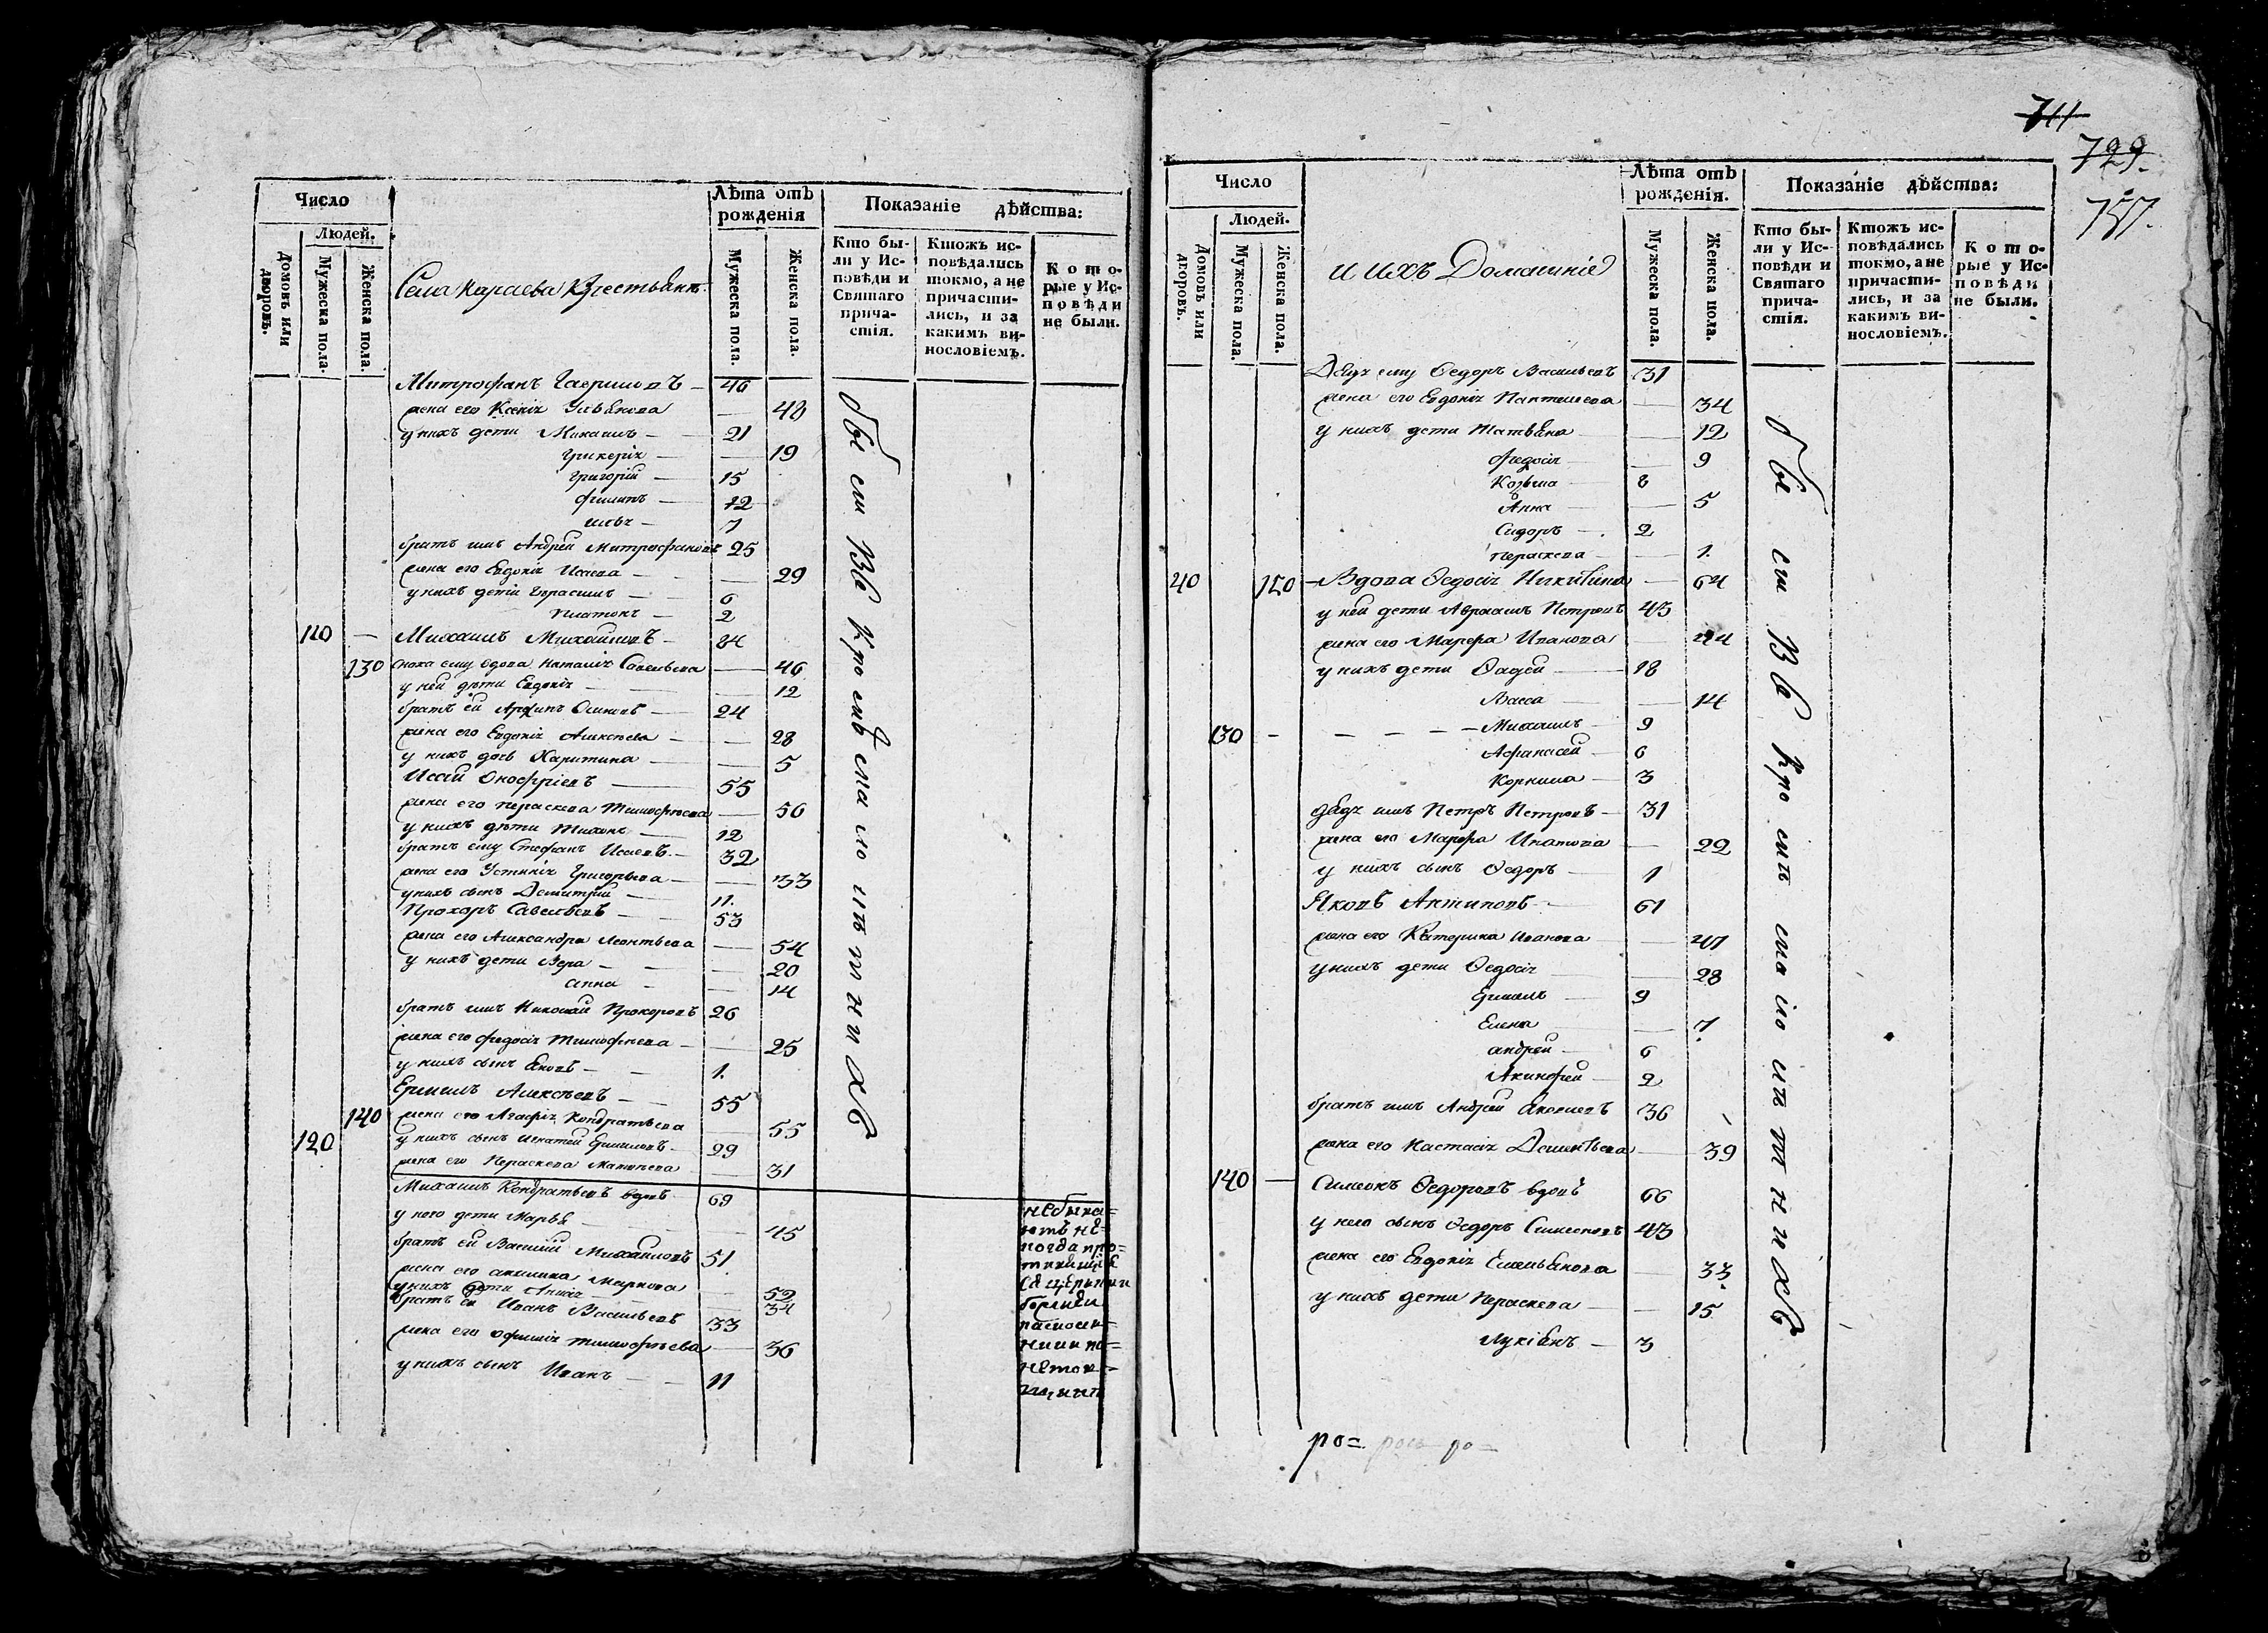 Число
Людей.
Домовъ или дворовъ.
Мужеска пола.
Женска пола.
Села Караева Крестьянъ
Лѣта отъ рожденія
Мужеска пола.
Женска пола.
Показаніе дѣйства:
Кто бы-
ли у Ис-
повѣди и
Святаго
прича-
стія.
Ктожъ ис-
повѣдались
токмо, а не
причасти-
лись, и за
какимъ ви-
нословіемъ.
Кото-
рые у Ис-
повѣди
не были.
Митрофанъ Гавриловъ — 46
жена его Ксенія — 48
у нихъ дети Михаилъ — 21
Гликерія — 19
Григорій — 15
Филипъ — 12
Илья — 7
братъ имъ Андрей Митрофановъ 25
жена его Евдокія Исаева — 29
у нихъ дети Герасимъ — 6
Платонъ — 2
110 — Михаилъ Михайловъ — 24
130 сноха ему вдова Наталія Савельева — 46
у ней дѣти Евдокія — 12
братъ ей Архипъ Осиповъ — 24
жена его Евдокія Алексѣева — 28
у нихъ дочь Харитина — 5
Исай Онофріевъ — 55
жена его Пераскева Тимофѣева — 50
у нихъ дѣти Тихонъ — 12
братъ ему Стефанъ Исаевъ — 32
жена его Устинія Григорьева — 33
у нихъ сынъ Димитрій — 11.
Прохоръ Савельевъ — 53
жена его Александра Леонтьева — 54
у нихъ дети Вера — 20
Анна — 14
братъ имъ Николай Прохоровъ 26
жена его Федосія Тимофѣева — 25
у нихъ сынъ Яковъ — 1.
Ермилъ Алексѣевъ — 55
140 жена его Агафія Кондратьева 55
120 у нихъ сынъ Игнатей Ермиловъ — 29
жена его Пераскева Матвѣева 31
Михаилъ Кондратьевъ вдовъ 69
у него дети Марья — 45
братъ ей Василій Михайловъ 51
жена его Акилина Маркова 52
у нихъ дети Анисія 34
братъ ей Иванъ Васильевъ 33
жена его Офимія Тимофѣева — 36
у нихъ сынъ Иванъ — 11
711
729.
757.
Число
Людей.
Домовъ или дворовъ.
Мужеска пола.
Женска пола.
и ихъ Домашніе
Лѣта отъ рожденія.
Мужеска пола.
Женска пола.
Показаніе дѣйства:
Кто бы-
ли у Ис-
повѣди и
Святаго
прича-
стія.
Ктожъ ис-
повѣдались
токмо, а не
причасти-
лись, и за
какимъ ви-
нословіемъ.
Кото-
рые у Ис-
повѣди
не были.
Дядя ему Ѳедоръ Васильевъ 31
жена его Евдокія Пантелеева — 34
у нихъ дети Татьяна — 12
Федосія — 9
Козьма — 8
Анна — 5
Сидоръ — 2
Пераскева — 1.
40 150 — Вдова Ѳедосія Никитина — 64
у ней дети Авраамъ Петровъ 43
жена его Марѳра Иванова — 44
у нихъ дети Ѳадей — 18
Васса — 14
130 — Михаилъ — 9
Афанасей — 6
Корнила — 3
дядя имъ Петръ Петровъ — 31
жена его Марфа Ипатова — 22
у нихъ сынъ Ѳедоръ — 1
Яковъ Антиповъ — 61
жена его Катерина Иванова — 47
у нихъ дети Ѳедосія — 28
Ермилъ — 9
Елена — 7
Андрей — 6
Акинфей — 2
братъ имъ Андрей Яковлевъ 36
жена его Настасія Дементьева — 39
140 — Симеонъ Ѳедоровъ вдовъ 66
у него сынъ Ѳедоръ Симеоновъ 43
жена его Евдокія Емельянова — 33
у нихъ дети Пераскева — 15
Лукіянъ — 3
ро=